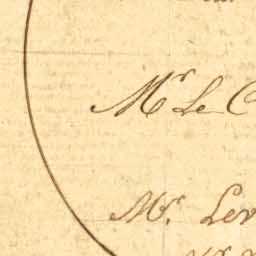 Mr Le C
Mr. Lev